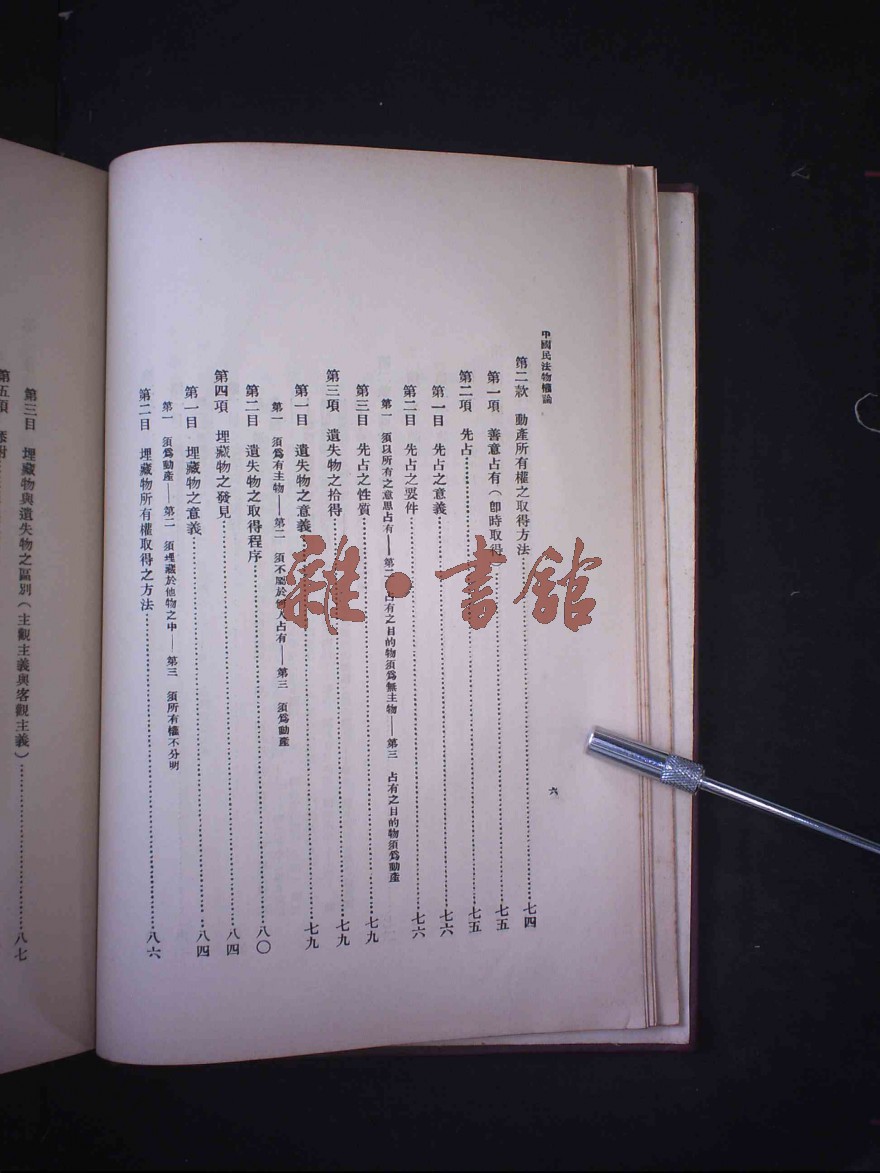 中國民法物權論
六
第二款 動產所有權之取得方法……七四
第一項 善意占有(卽時取得)……七五
第二項 先占……七五
第一目 先占之意義……七六
第二目 先占之要件……七六
第一 須以所有之意思占有——第二 占有之目的物須爲無主物——第三 占有之目的物須爲動產
第三目 先占之性質……七九
第三項 遺失物之拾得……七九
第一目 遺失物之意義……七九
第一 須爲有主物——第二 須不屬於何人占有——第三 須爲動產
第二目 遺失物之取得程序……八〇
第四項 埋藏物之發見……八四
第一目 埋藏物之意義……八四
第一 須爲動產——第二 須埋藏於他物之中——第三 須所有權不分明
第二目 埋藏物所有權取得之方法……八六
第三目 埋藏物與遺失物之區別(主觀主義與客觀主義)……八七
第五項 添附……
雜·書館